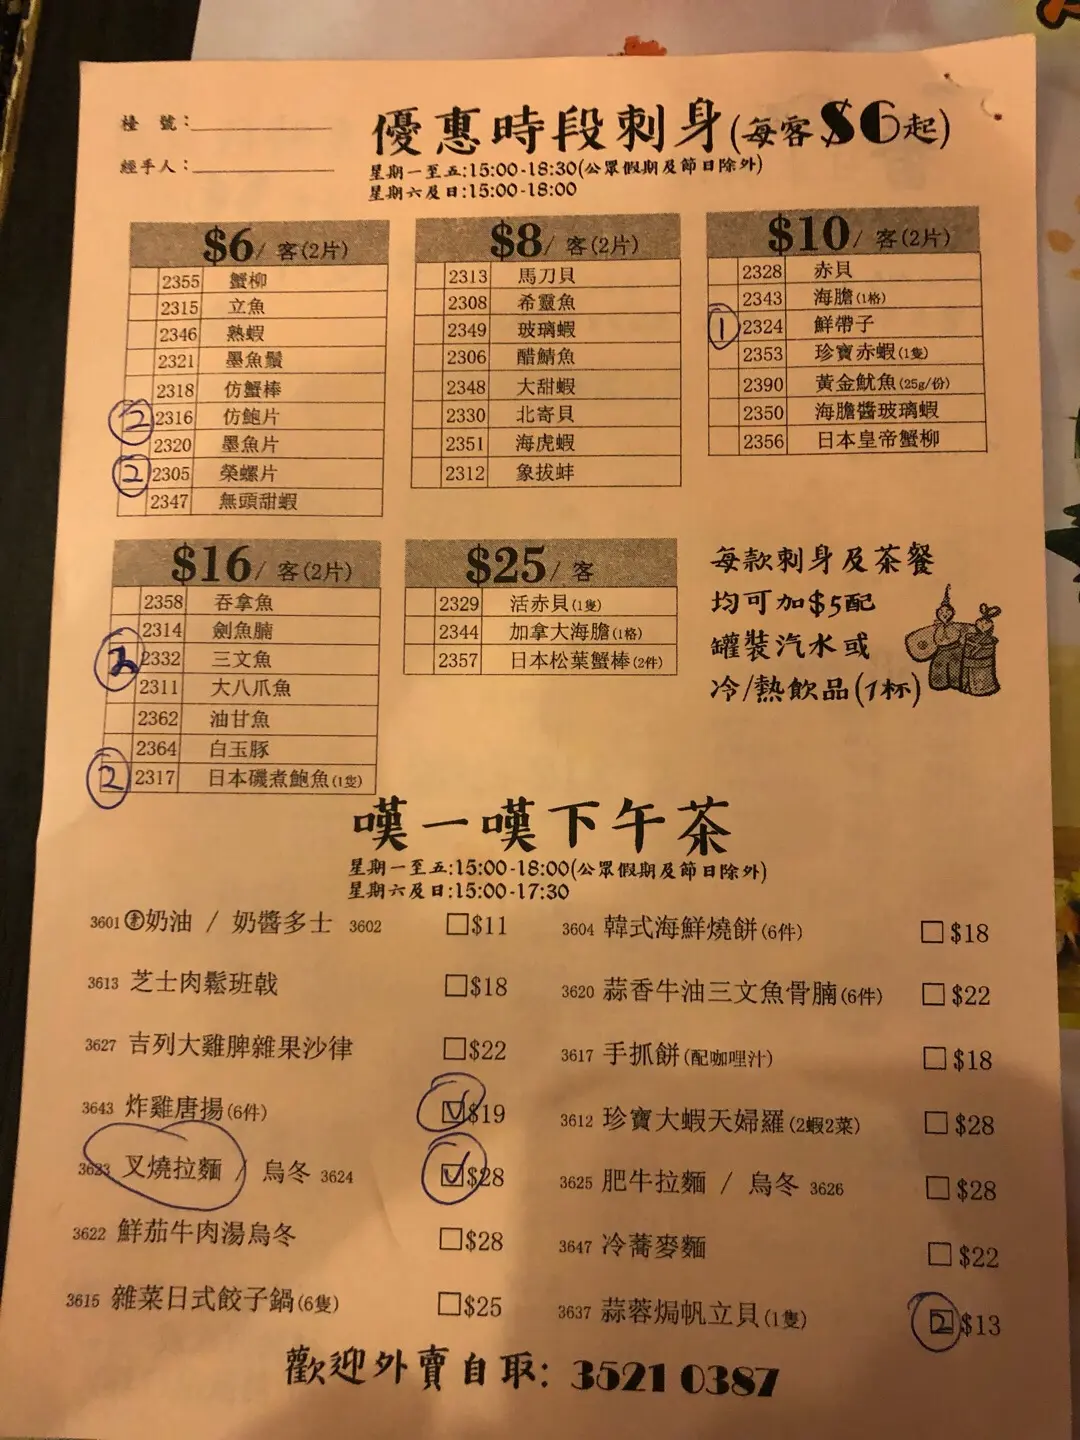 檯 號：
經手人：
優惠時段刺身(每客$6起)
星期一至五:15:00-18:30(公眾假期及節日除外)
星期六及日:15:00-18:00
$6/ 客(2片)
2355 蟹柳
2315 立魚
2346 熟蝦
2321 墨魚鬚
2318 仿蟹棒
2 2316 仿鮑片
2320 墨魚片
2 2305 榮螺片
2347 無頭甜蝦
$8/ 客(2片)
2313 馬刀貝
2308 希靈魚
2349 玻璃蝦
2306 醋鯖魚
2348 大甜蝦
2330 北寄貝
2351 海虎蝦
2312 象拔蚌
$10/ 客(2片)
2328 赤貝
2343 海膽(1格)
1 2324 鮮帶子
2353 珍寶赤蝦(1隻)
2390 黃金魷魚(25g/份)
2350 海膽醬玻璃蝦
2356 日本皇帝蟹柳
$16/ 客(2片)
2358 吞拿魚
2314 劍魚腩
2 2332 三文魚
2311 大八爪魚
2362 油甘魚
2364 白玉豚
2 2317 日本磯煮鮑魚(1隻)
$25/ 客
2329 活赤貝(1隻)
2344 加拿大海膽(1格)
2357 日本松葉蟹棒(2件)
每款刺身及茶餐
均可加$5配
罐裝汽水或
冷/熱飲品(1杯)
嘆一嘆下午茶
星期一至五:15:00-18:00(公眾假期及節日除外)
星期六及日:15:00-17:30
3601 素奶油 / 奶醬多士 3602 □$11
3613 芝士肉鬆班戟 □$18
3627 吉列大雞脾雜果沙律 □$22
3643 炸雞唐揚(6件) ☑$19
3623 叉燒拉麵 / 烏冬 3624 ☑$28
3622 鮮茄牛肉湯烏冬 □$28
3615 雜菜日式餃子鍋(6隻) □$25
3604 韓式海鮮燒餅(6件) □$18
3620 蒜香牛油三文魚骨腩(6件) □$22
3617 手抓餅(配咖哩汁) □$18
3612 珍寶大蝦天婦羅(2蝦2菜) □$28
3625 肥牛拉麵 / 烏冬 3626 □$28
3647 冷蕎麥麵 □$22
3637 蒜蓉焗帆立貝(1隻) 2 $13
歡迎外賣自取: 3521 0387